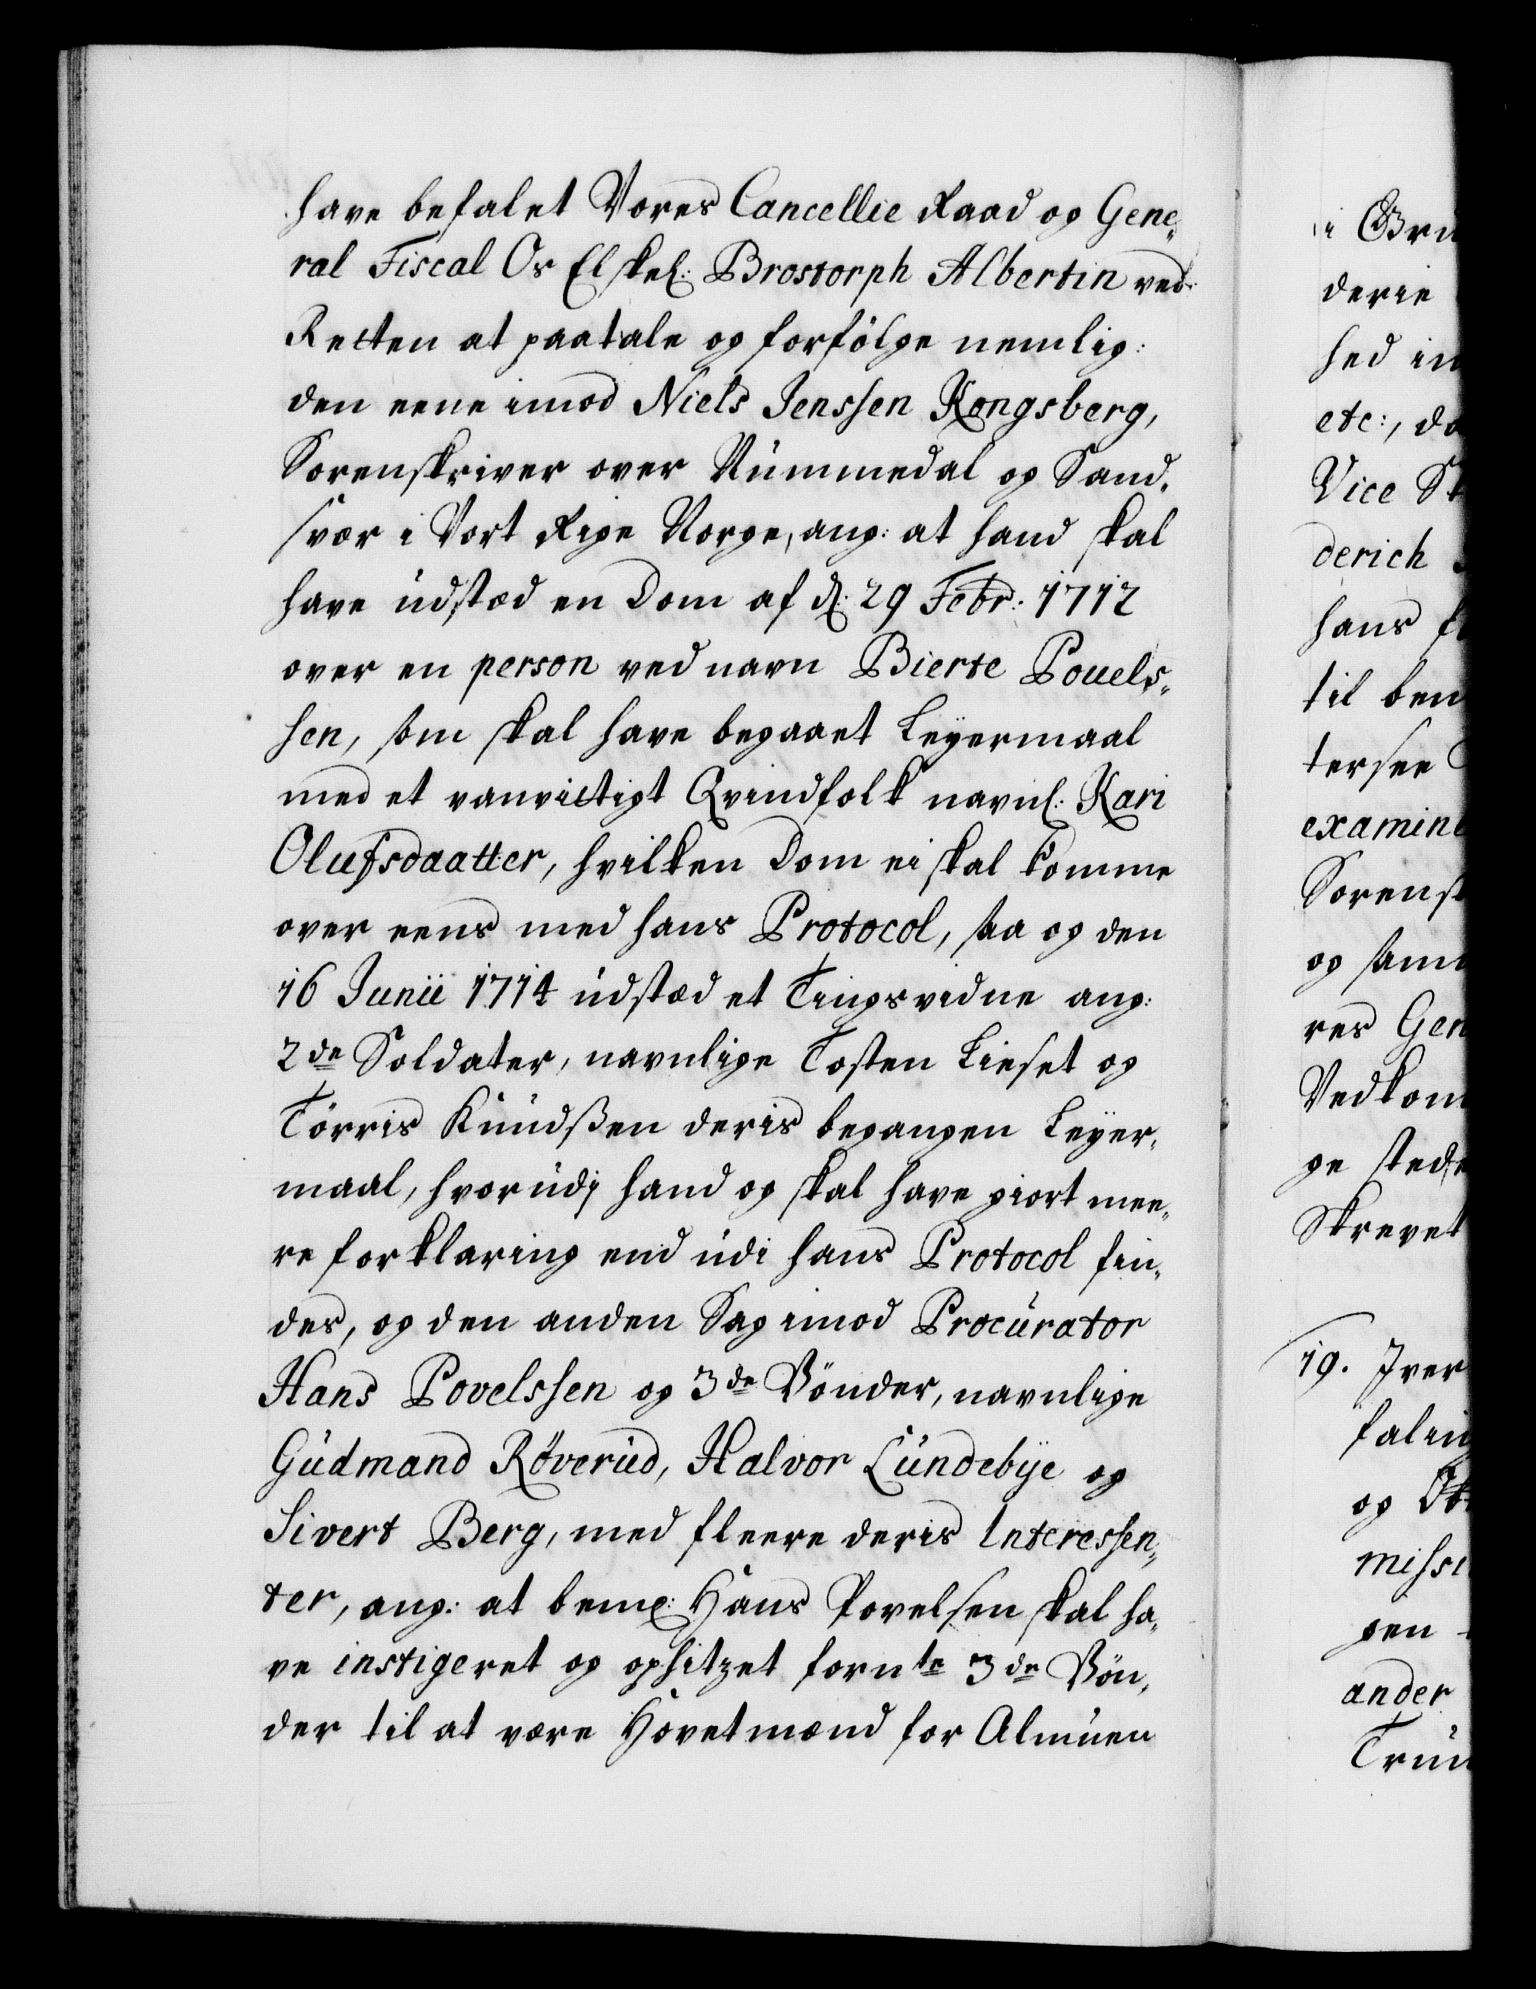 have befalet Vores Cancellie Raad og Gene„
ral Fiscal Os Elskel: Brostorph Albertin ved
Retten at paatale og forfölge nemlig:
den eene imod Niels Jenssen Kongsberg,
Sorenskriver over Nummedal og Sand„
svær i Vort Rige Norge, ang: at hand skal
have udstæd en Dom af d: 29 Febr: 1712
over en person ved navn Bierte Pouels„
sen, som skal have begaaet Leyermaal
med et vanvittigt Qvindfolk navnl: Kari
Olufsdaatter, hvilken Dom ei skal komme
over eens med hans Protocol, saa og den
16 Junii 1714 udstæd et Tingsvidne ang:
2de Soldater, navnlige Tosten Lieset og
Törris Knudszen deris begangen Leyer„
maal, hvorudj hand og skal have giort mee„
re forklaring end udi hans Protocol fin„
des, og den anden Sag imod Procurator
Hans Povelssen og 3de Bönder, navnlige
Gudmand Röverud, Halvor Lundebÿe og
Sivert Berg, med fleere deris Interessen„
ter, ang: at bemte: Hans Povelsen skal ha„
ve instigeret og ophitzet fornte 3de Bön„
der til at være Hovetmænd for Almuen
i Gru
derie
hed in
etc:, da
Vice St
derich
hans
til ben
tersee
examine
Sorensk
og sam
res Gen
Vedkom
ge stede
Skrevet
19. Iver
falin
og Ob
missi
gen
ander
Trun